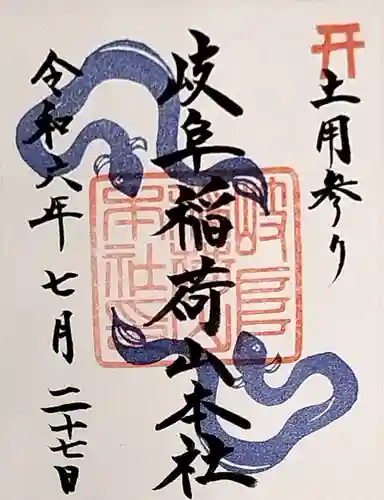 土用参り
岐阜稲荷山本社
令和六年七月二十七日
岐阜稲荷山本社印